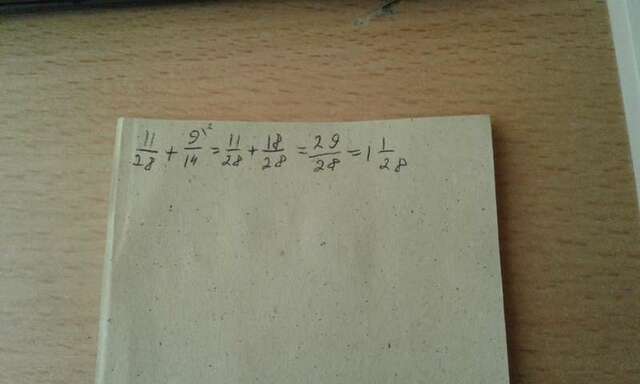 11/28 + 9\²/14 = 11/28 + 18/28 = 29/28 = 1 1/28